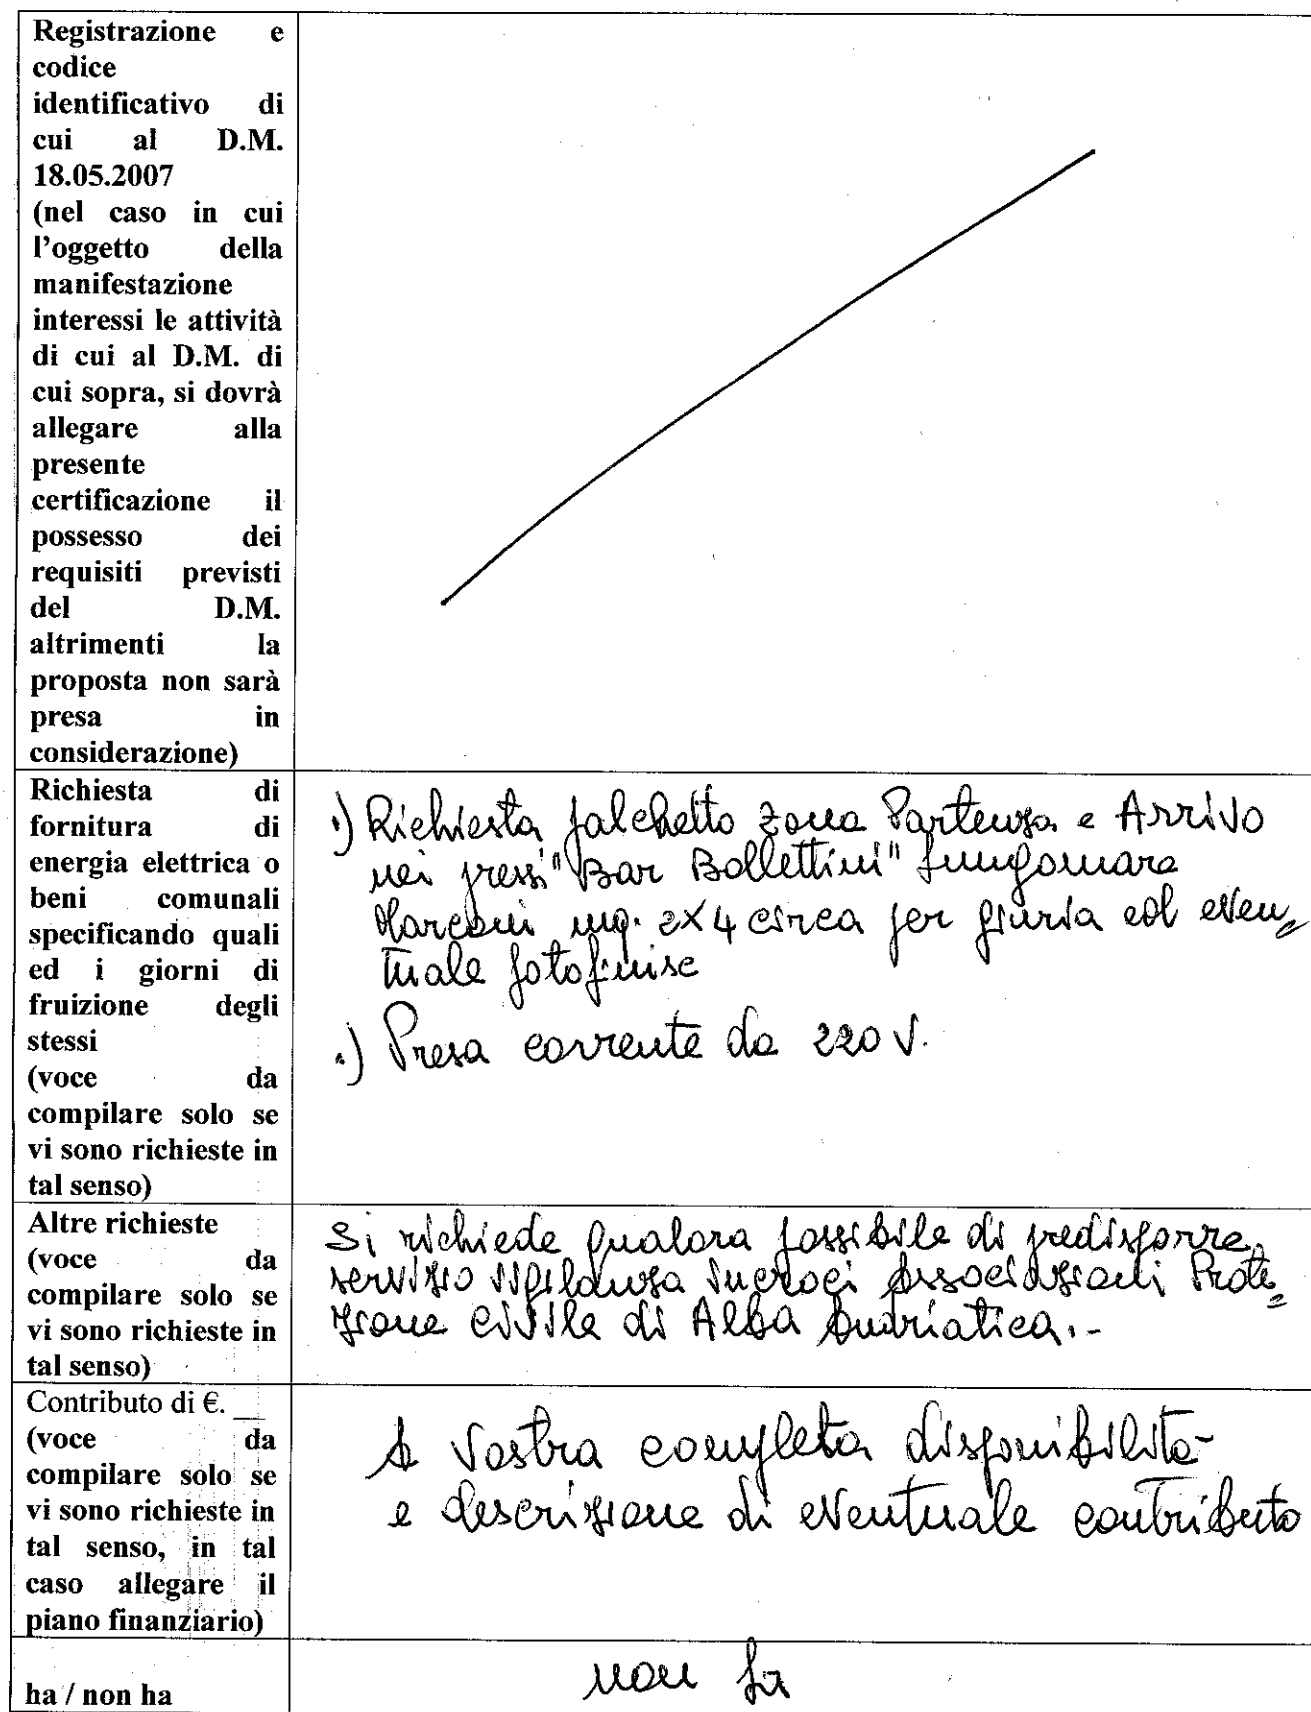 Registrazione e
codice
identificativo di
cui al D.M.
18.05.2007
(nel caso in cui
l'oggetto della
manifestazione
interessi le attività
di cui al D.M. di
cui sopra, si dovrà
allegare alla
presente
certificazione il
possesso dei
requisiti previsti
del D.M.
altrimenti la
proposta non sarà
presa in
considerazione)
Richiesta di
fornitura di
energia elettrica o
beni comunali
specificando quali
ed i giorni di
fruizione degli
stessi
(voce da
compilare solo se
vi sono richieste in
tal senso)
.) Richiesta palchetto zona Partenza e Arrivo
nei pressi "Bar Bollettini" Lungomare
Marconi mq. 2x4 circa per giuria ed even=
tuale fotofinisc
.) Presa corrente da 220 V.
Altre richieste
(voce da
compilare solo se
vi sono richieste in
tal senso)
Si richiede qualora possibile di predisporre
servizio vigilanza incroci Associazioni Prote=
zione civile di Alba Adriatica.-
Contributo di €. __
(voce da
compilare solo se
vi sono richieste in
tal senso, in tal
caso allegare il
piano finanziario)
A Vostra completa disponibilità-
e descrizione di eventuale contributo
ha / non ha
non ha